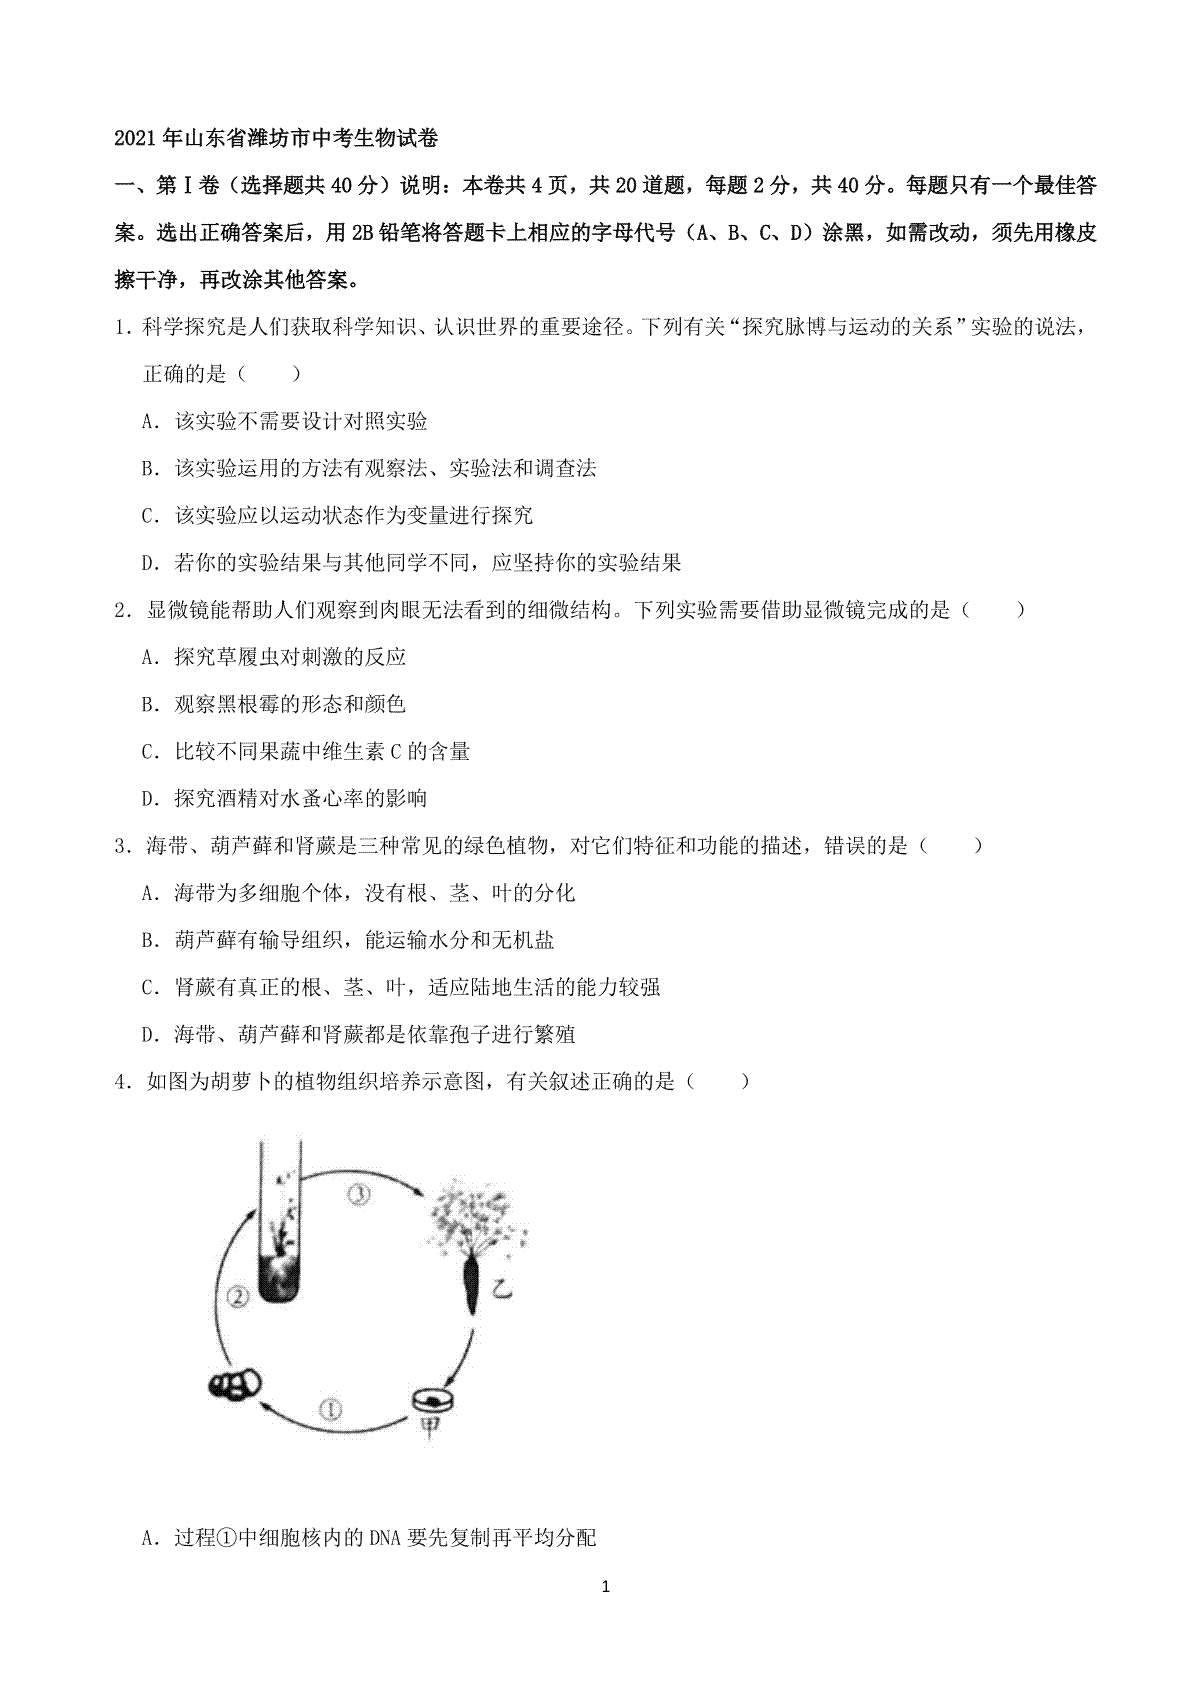 2021年山东省潍坊市中考生物试卷
一、第Ⅰ卷（选择题共40分）说明：本卷共4页，共20道题，每题2分，共40分。每题只有一个最佳答
案。选出正确答案后，用2B铅笔将答题卡上相应的字母代号（A、B、C、D）涂黑，如需改动，须先用橡皮
擦干净，再改涂其他答案。
1．科学探究是人们获取科学知识、认识世界的重要途径。下列有关“探究脉博与运动的关系”实验的说法，
正确的是（　　）
A．该实验不需要设计对照实验
B．该实验运用的方法有观察法、实验法和调查法
C．该实验应以运动状态作为变量进行探究
D．若你的实验结果与其他同学不同，应坚持你的实验结果
2．显微镜能帮助人们观察到肉眼无法看到的细微结构。下列实验需要借助显微镜完成的是（　　）
A．探究草履虫对刺激的反应
B．观察黑根霉的形态和颜色
C．比较不同果蔬中维生素C的含量
D．探究酒精对水蚤心率的影响
3．海带、葫芦藓和肾蕨是三种常见的绿色植物，对它们特征和功能的描述，错误的是（　　）
A．海带为多细胞个体，没有根、茎、叶的分化
B．葫芦藓有输导组织，能运输水分和无机盐
C．肾蕨有真正的根、茎、叶，适应陆地生活的能力较强
D．海带、葫芦藓和肾蕨都是依靠孢子进行繁殖
4．如图为胡萝卜的植物组织培养示意图，有关叙述正确的是（　　）
③
乙
②
①
甲
A．过程①中细胞核内的DNA要先复制再平均分配
1